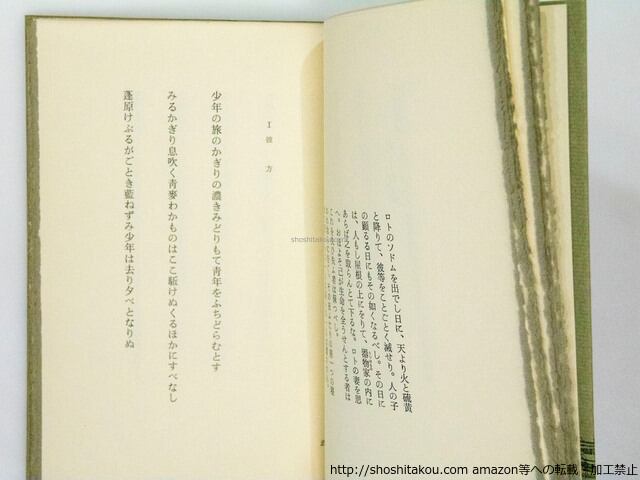 ロトのソドムを出でし日に、天より火と硫黄
と降りて、彼等をことごとく滅せり。人の子
の顕るる日にもその如くなるべし。その日に
は、人もし屋根の上にをりて、器物家の内に
あらば之を取らんとて下るな。ロトの妻を思
へ。おほよそ己が生命を全うせんとする者は
I 彼方
少年の旅のかぎりの濃きみどりもて青年をふちどらむとす
みるかぎり息吹く青麥わかものはここ駈けぬくるほかにすべなし
蓬原けぶるがごとき藍ねずみ少年は去り夕べとなりぬ
shoshitakou.com
http://shoshitakou.com amazon等への転載・加工禁止